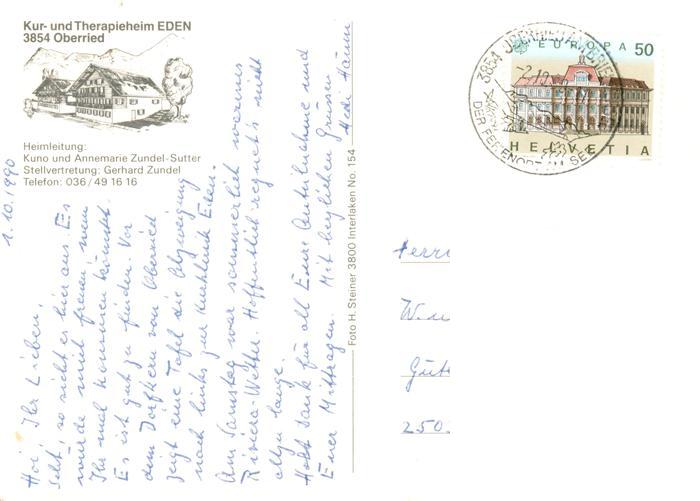 Kur- und Therapieheim EDEN
3854 Oberried
Heimleitung:
Kuno und Annemarie Zundel-Sutter
Stellvertretung: Gerhard Zundel
Telefon: 036/49 16 16
1.10.1990
Hoi, Ihr Lieben,
Seht, so sieht es hier aus. Es
würde mich freuen, wenn
Ihr mal kommen könntet.
Es ist gut zu finden. Vor
dem Dorfkern von Oberried
zeigt eine Tafel die Abzweigung
nach links zur Kurklinik Eden.
Am Samstag war sommerlich warmes
Riviera-Wetter. Hoffentlich regnet's nicht
allzu lange.
Habt Dank für all Eure Anteilnahme und
Euer Mittragen. Mit herzlichen Grüssen
Hedi
Foto H. Steiner 3800 Interlaken No. 154
EUROPA 50
HELVETIA
3854 OBERRIED AM BRIENZERSEE
DER FERIENORT AM SEE
Herrn
Güt
250.